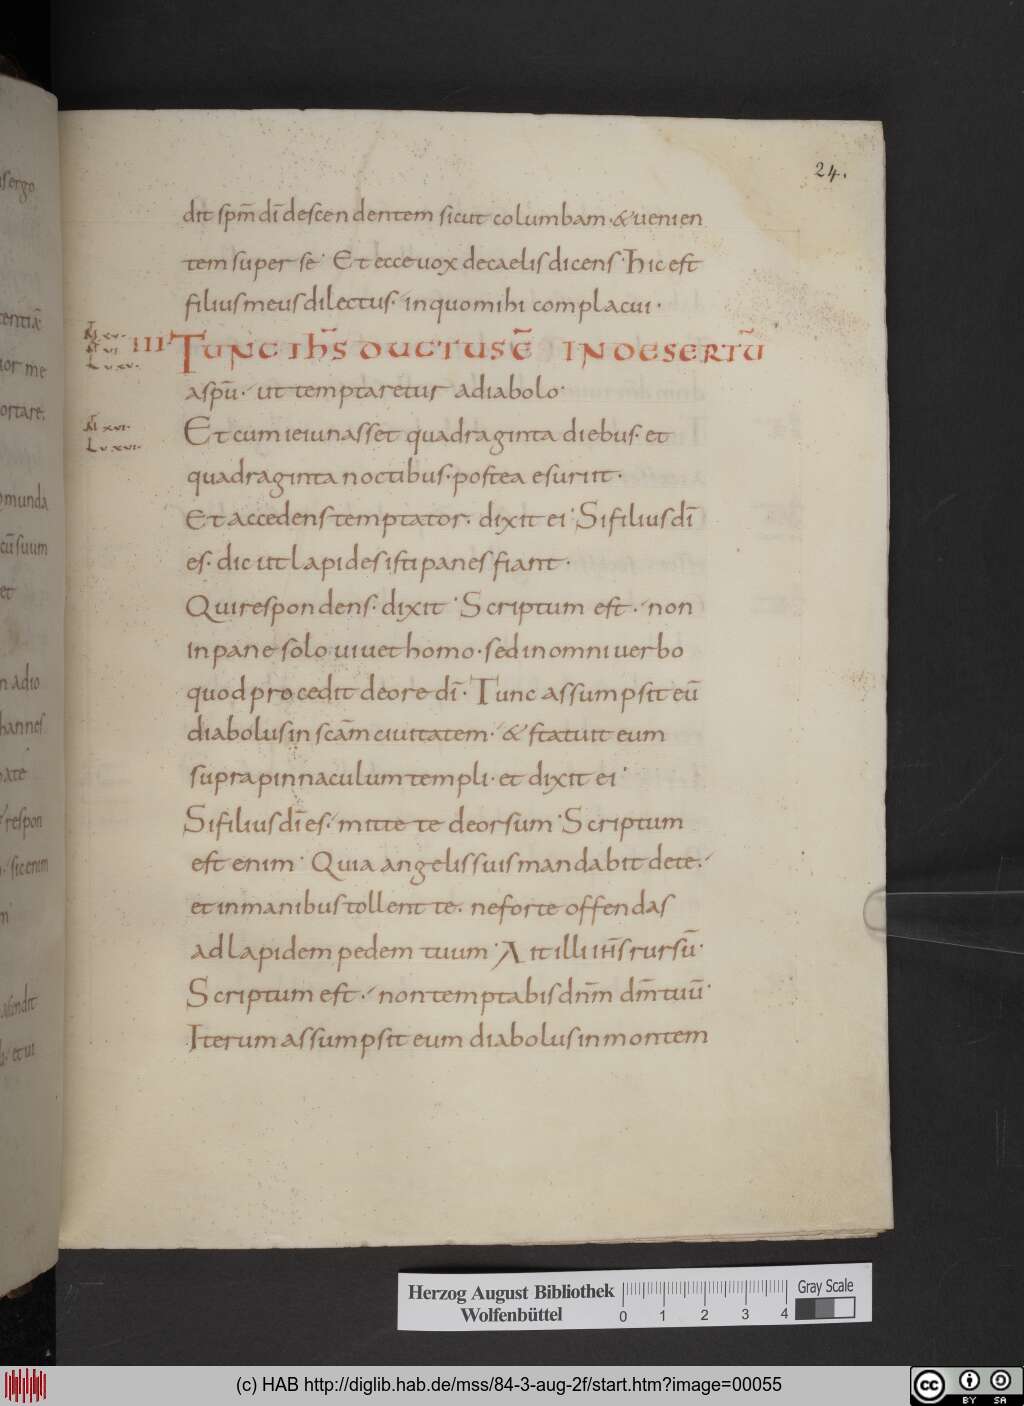 24.
dit spm̄ dī descendentem sicut columbam· & uenien
tem super se· Et ecce uox de caelis dicens· Hic est
filius meus dilectus· in quo mihi complacui·
III· TUNC IHS̄ DUCTUS Ē IN DESERTŪ
a spū· ut temptaretur a diabolo·
M̄ xvi·
L v xvi·
Et cum ieiunasset quadraginta diebus· et
quadraginta noctibus· postea esuriit·
Et accedens temptator· dixit ei· Si filius dī
es· dic ut lapides isti panes fiant·
Qui respondens· dixit· Scriptum est· non
in pane solo uiuet homo· sed in omni uerbo
quod procedit de ore dī· Tunc assumpsit eū
diabolus in scām ciuitatem· & statuit eum
supra pinnaculum templi· et dixit ei·
Si filius dī es· mitte te deorsum· Scriptum
est enim· Quia angelis suis mandabit de te·
et in manibus tollent te· ne forte offendas
ad lapidem pedem tuum· Ait illi ihs̄ rursū·
Scriptum est· non temptabis dnm̄ dm̄ tuū·
Iterum assumpsit eum diabolus in montem
Herzog August Bibliothek
Wolfenbüttel
0 1 2 3 4
Gray Scale
(c) HAB http://diglib.hab.de/mss/84-3-aug-2f/start.htm?image=00055
cc BY SA